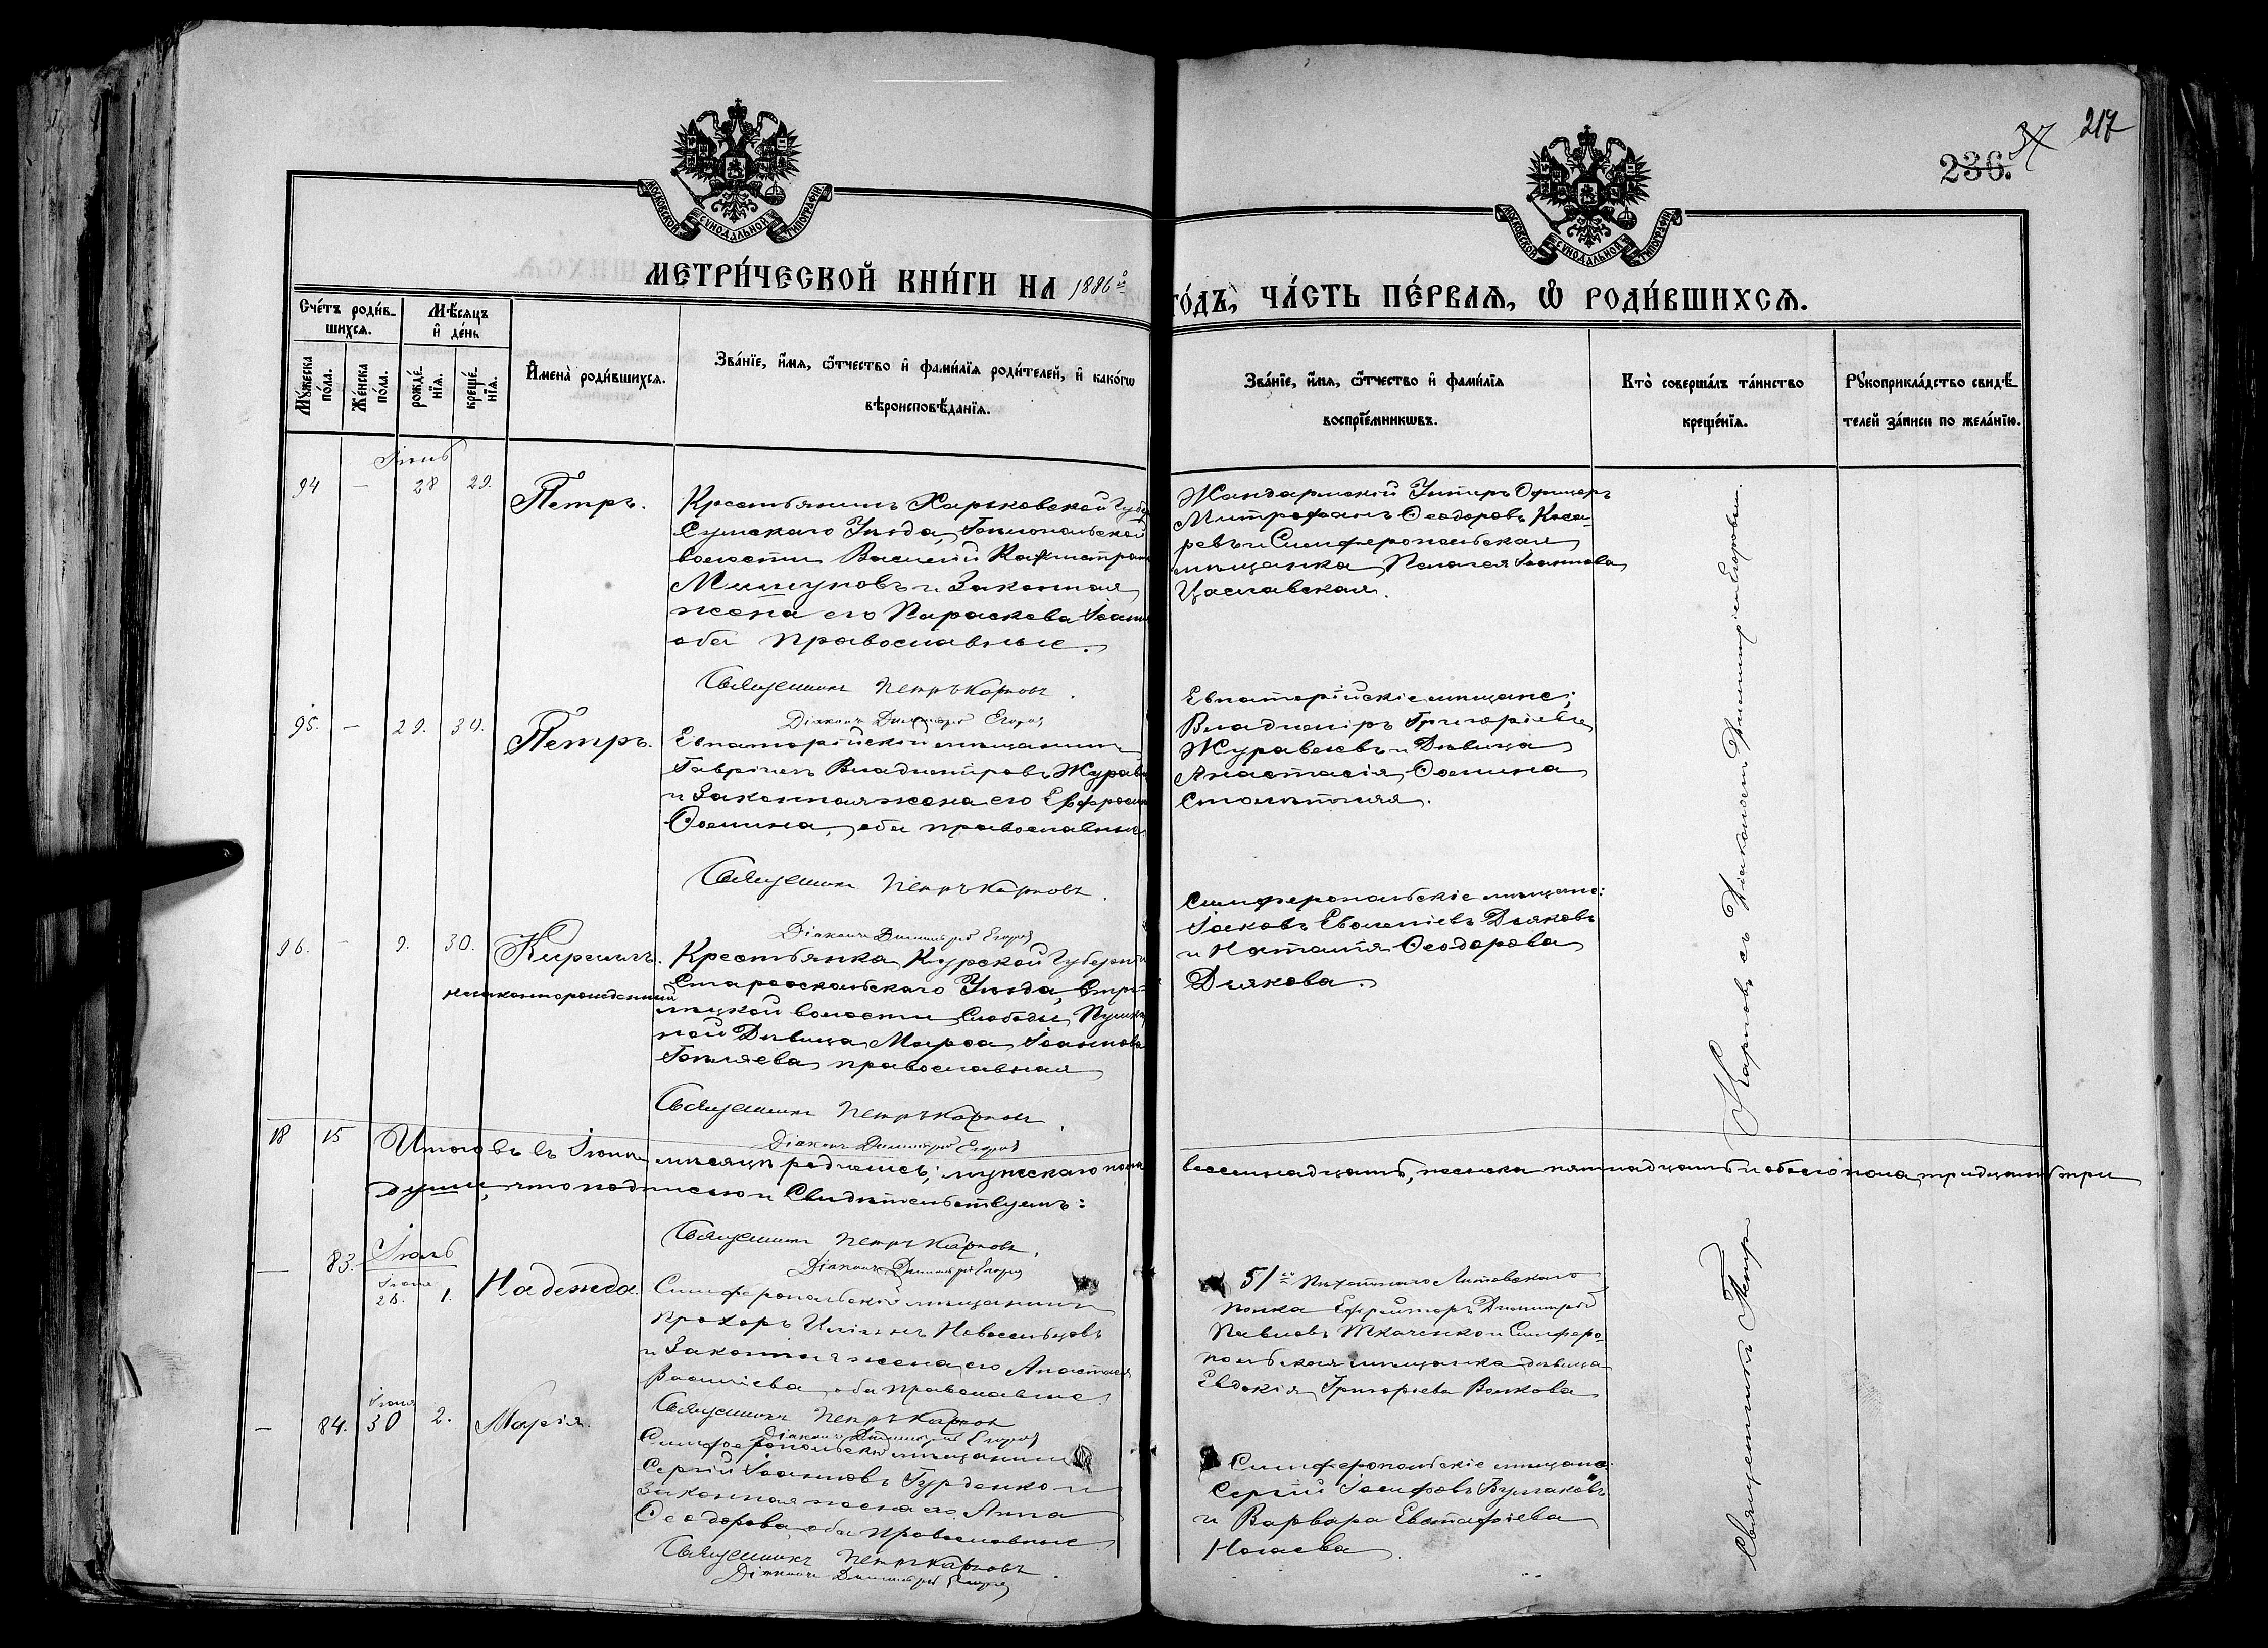 37 217
236.
МОСКОВСКОЙ СУНОДАЛЬНОЙ ТИПОГРАФІИ
МОСКОВСКОЙ СУНОДАЛЬНОЙ ТИПОГРАФІИ
МЕТРИ́ЧЕСКОЙ КНИ́ГИ НА 1886 го
ГО́ДЪ, ЧА́СТЬ ПЕ́РВАЯ, Ѡ РОДИ́ВШИХСЯ.
Сче́тъ роди́в-
шихся.
Мѣ́сяцъ
и де́нь
Му́жеска по́ла.
Же́нска по́ла.
рожде́нїя.
креще́нїя.
Имена̀ роди́вшихся.
Зва́нїе, и́мя, ѻ́тчество и фами́лїя роди́телей, и како́гѡ
вѣроисповѣ́данїя.
Зва́нїе, и́мя, ѻ́тчество и фами́лїя
воспрїе́мникѡвъ.
Кто̀ соверша́лъ та́инство
креще́нїя.
Рꙋкоприкла́дство свидѣ́-
телей за́писи по жела́нїю.
Іюнь
94 — 28 29. Петръ.
Крестьянинъ Харьковской Губер
Сумскаго Уѣзда,
волости Василій
Мишуновъ и Законная
жена его Параскева Іоан
оба православные.
Священникъ Петръ Карповъ.
Діаконъ Димитрій Егоров
Жандармскій Унтеръ Офицеръ
Митрофанъ Ѳеодоровъ Коса-
ревъ и Симферопольская
мѣщанка Пелагея Іоаннова
Цаславская.
95. — 29. 30. Петръ.
Евпаторійскій мѣщанинъ
Гавріилъ Владиміровъ Журавл
и Законная жена его Евфросин
Ѳомина, оба православные.
Священникъ Петръ Карповъ.
Діаконъ Димитрій Егоров
Евпаторійскіе мѣщане;
Владиміръ Григоріевъ
Журавлевъ и Дѣвица
Анастасія Ѳомина
96. — 9. 30. Кириллъ.
незаконнорожденный
Крестьянка Курской Губерні
Старооскольскаго Уѣзда,
волости Слободы Пушкар
ной Дѣвица Марѳа Іоаннова
православная
Священникъ Петръ Карповъ.
Діаконъ Димитрій Егоров
Симферопольскіе мѣщане:
Іаковъ Дьяковъ
и Наталія Ѳеодорова
Дьякова.
18 15 Итого въ Іюнѣ мѣсяцѣ родилось; мужскаго пола
восемнадцать, женска пятнадцать и обоего пола тридцать три
души, что подписью и Свидѣтельствуемъ:
Священникъ Петръ Карповъ.
Діаконъ Димитрій Егоров
Іюль
— 83. Іюня 28. 1. Надежда.
Симферопольскій мѣщанинъ
Прохоръ Новосельцовъ
и Законная жена его Анастасія
Василіева, оба православные.
Священникъ Петръ Карпов
Діаконъ Димитрій Егоров
51 го Пѣхотнаго Литовскаго
полка Ефрейторъ Димитрій
Павловъ Ткаченко и Симферо-
польская мѣщанка дѣвица
Евдокія Григоріева Волкова
— 84. Іюня 30 2. Марія.
Симферопольскій мѣщанинъ
Сергій Іоанновъ Гурденко и
Законная жена его Анна
Ѳеодорова, оба православные
Священникъ Петръ Карповъ.
Діаконъ Димитрій Егоров
Симферопольскіе мѣщане:
Сергій Іосифовъ Булгаковъ
и Варвара Евстафіева
Ногаева.
Священникъ Петръ Карповъ съ Діакономъ Димитріемъ Егоровым.